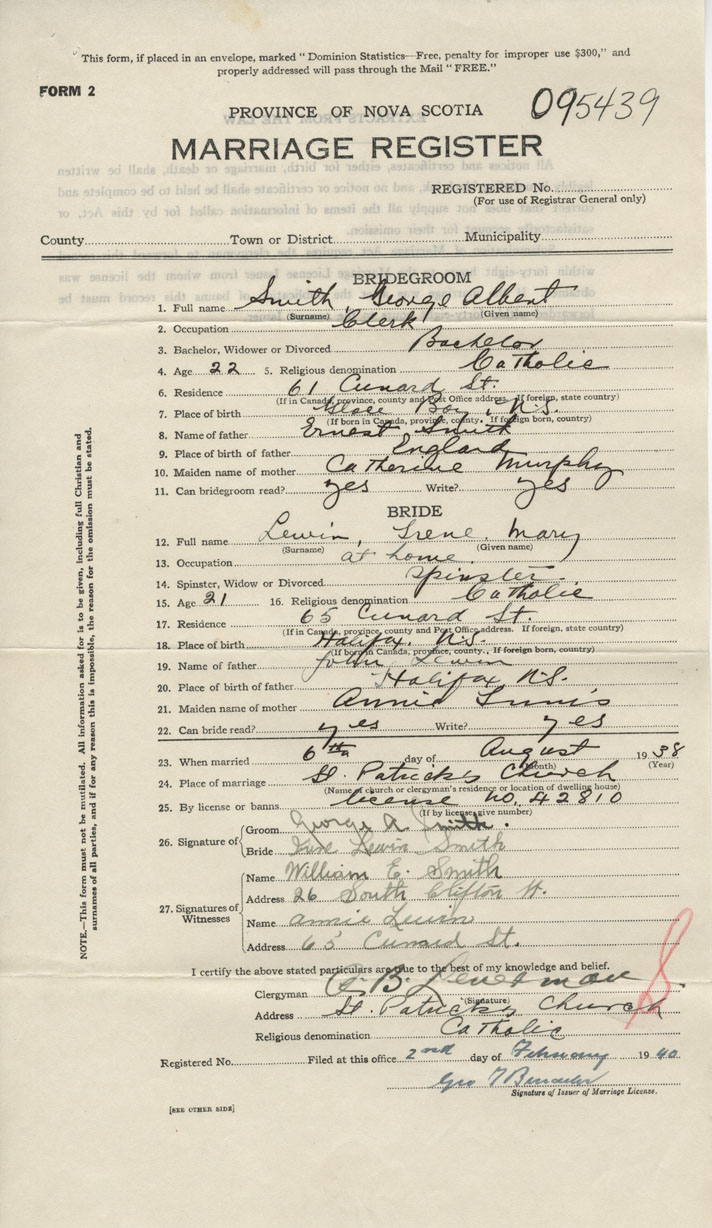 This form, if placed in an envelope, marked "Dominion Statistics—Free, penalty for improper use $300," and
properly addressed will pass through the Mail "FREE."
FORM 2
095439
PROVINCE OF NOVA SCOTIA
MARRIAGE REGISTER
REGISTERED No.
(For use of Registrar General only)
County Town or District Municipality
BRIDEGROOM
1. Full name Smith, George Albert
(Surname) (Given name)
2. Occupation Clerk
3. Bachelor, Widower or Divorced Bachelor
4. Age 22 5. Religious denomination Catholic
6. Residence 61 Cunard St.
(If in Canada, province, county and Post Office address. If foreign, state country)
7. Place of birth Glace Bay, N.S.
(If born in Canada, province, county. If foreign born, country)
8. Name of father Ernest Smith
9. Place of birth of father England
10. Maiden name of mother Catherine Murphy
11. Can bridegroom read? yes Write? yes
BRIDE
12. Full name Lewin, Irene Mary
(Surname) (Given name)
13. Occupation at home
14. Spinster, Widow or Divorced Spinster
15. Age 21 16. Religious denomination Catholic
17. Residence 65 Cunard St.
(If in Canada, province, county and Post Office address. If foreign, state country)
18. Place of birth Halifax, N.S.
(If born in Canada, province, county., If foreign born, country)
19. Name of father John Lewin
20. Place of birth of father Halifax N.S.
21. Maiden name of mother Annie
22. Can bride read? yes Write? yes
23. When married 6th day of August 1938
(Month) (Year)
24. Place of marriage St. Patrick's Church
(Name of church or clergyman's residence or location of dwelling house)
25. By license or banns license no. 42810
(If by license, give number)
26. Signature of
Groom George A Smith.
Bride Irene Lewin Smith
27. Signatures of Witnesses
Name William E. Smith
Address 26 South Clifton St.
Name Annie Lewin
Address 65 Cunard St.
I certify the above stated particulars are true to the best of my knowledge and belief.
Clergyman
(Signature)
Address St. Patrick's Church
Religious denomination Catholic
Registered No. Filed at this office 2nd day of February 1940
Geo
Signature of Issuer of Marriage License.
[SEE OTHER SIDE]
NOTE.—This form must not be mutilated. All information asked for is to be given, including full Christian and
surnames of all parties, and if for any reason this is impossible, the reason for the omission must be stated.